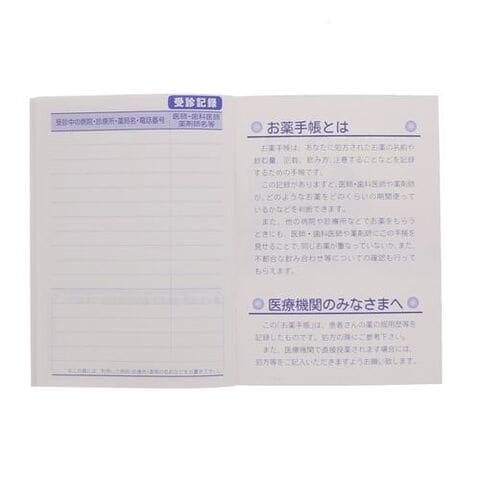 受診記録
受診中の病院・診療所・薬局名・電話番号
医師・歯科医師
薬剤師名等
お薬手帳とは
お薬手帳は、あなたに処方されたお薬の名前や
飲む量、回数、飲み方、注意することなどを記録
するための手帳です。
この記録がありますと、医師・歯科医師や薬剤師
が、どのようなお薬をどのくらいの期間使って
いるかなどを判断できます。
また、他の病院や診療所などでお薬をもらう
ときにも、医師・歯科医師や薬剤師にこの手帳を
見せることで、同じお薬が重なっていないか、また、
不都合な飲み合わせ等についての確認も行って
もらえます。
医療機関のみなさまへ
この「お薬手帳」は、患者さんの薬の服用歴等を
記録したものです。処方の際にご参考下さい。
また、医療機関で直接投薬されます場合には、
処方等をご記入いただきますようお願い致します。